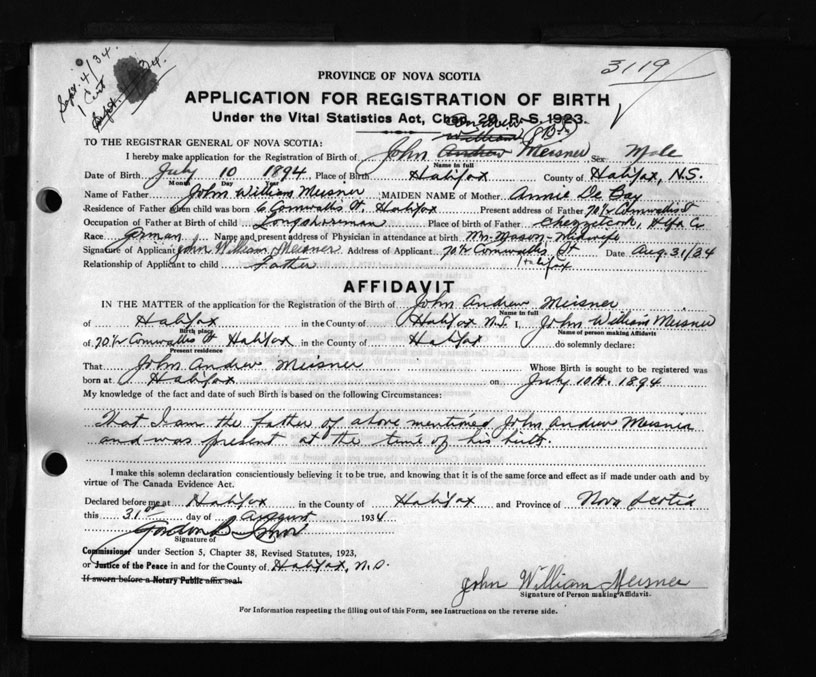 Sept. 4/34.
1 Cert
Sept.
3119
PROVINCE OF NOVA SCOTIA
APPLICATION FOR REGISTRATION OF BIRTH
Under the Vital Statistics Act, Chap. 29, R. S. 1923.
Andrew
William
TO THE REGISTRAR GENERAL OF NOVA SCOTIA:
I hereby make application for the Registration of Birth of John Andrew Meisner Sex Male
Name in full
Date of Birth July 10 1894 Place of Birth Halifax County of Halifax, N.S.
Month Day Year
Name of Father John William Meisner MAIDEN NAME of Mother Annie De Bay
Residence of Father when child was born 6 Cornwallis St. Halifax Present address of Father 70½ Cornwallis St
Occupation of Father at Birth of child Longshoreman Place of birth of Father Chezzetcook, Hlfx Co
Race German Name and present address of Physician in attendance at birth Mrs Mason - Midwife
Signature of Applicant John William Meisner Address of Applicant 70½ Cornwallis St Date Aug. 31/34
Halifax
Relationship of Applicant to child Father
AFFIDAVIT
IN THE MATTER of the application for the Registration of the Birth of John Andrew Meisner
Name in full
of Halifax in the County of Halifax N.S. I, John William Meisner
Birth place Name of person making Affidavit
of 70½ Cornwallis St Halifax in the County of Halifax do solemnly declare:
Present residence
That John Andrew Meisner Whose Birth is sought to be registered was
born at Halifax on July 10th. 1894
My knowledge of the fact and date of such Birth is based on the following Circumstances:
That I am the father of above mentioned John Andrew Meisner
and was present at the time of his birth.
I make this solemn declaration conscientiously believing it to be true, and knowing that it is of the same force and effect as if made under oath and by
virtue of The Canada Evidence Act.
Declared before me at Halifax in the County of Halifax and Province of Nova Scotia
this 31st day of August 1934
Gordon B
Signature of
Commissioner under Section 5, Chapter 38, Revised Statutes, 1923,
or Justice of the Peace in and for the County of Halifax, N.S.
If sworn before a Notary Public affix seal.
John William Meisner
Signature of Person making Affidavit.
For Information respecting the filling out of this Form, see Instructions on the reverse side.